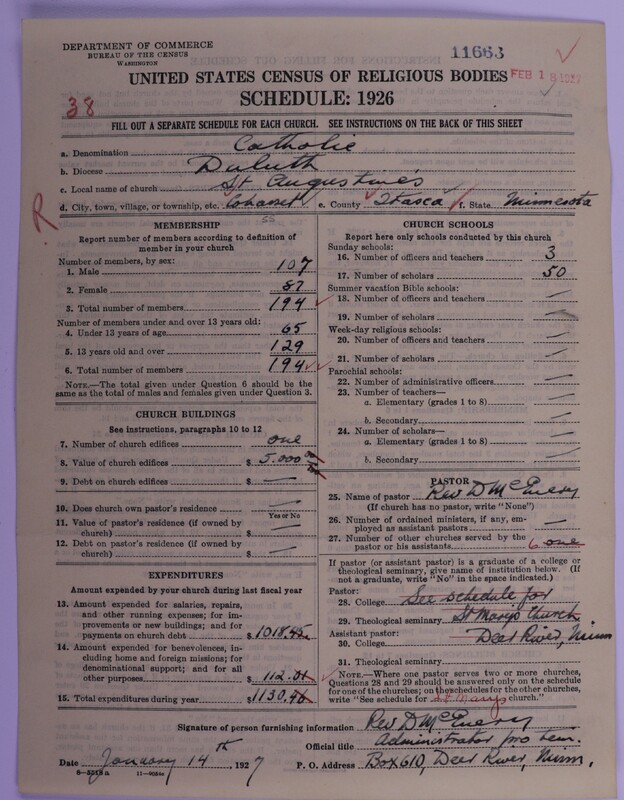 DEPARTMENT OF COMMERCE
BUREAU OF THE CENSUS
WASHINGTON
11663
FEB 18 1927
UNITED STATES CENSUS OF RELIGIOUS BODIES
SCHEDULE: 1926
38
FILL OUT A SEPARATE SCHEDULE FOR EACH CHURCH. SEE INSTRUCTIONS ON THE BACK OF THIS SHEET
a. Denomination Catholic
b. Diocese Duluth
c. Local name of church St Augustine's
d. City, town, village, or township, etc. Cohasset e. County Itasca f. State Minnesota
R
55
MEMBERSHIP
Report number of members according to definition of
member in your church
Number of members, by sex:
1. Male 107
2. Female 87
3. Total number of members 194
Number of members under and over 13 years old:
4. Under 13 years of age 65
5. 13 years old and over 129
6. Total number of members 194
NOTE.—The total given under Question 6 should be
the same as the total of males and females given under Question 3.
CHURCH BUILDINGS
See instructions, paragraphs 10 to 12
7. Number of church edifices one
8. Value of church edifices $ 5.000
9. Debt on church edifices $ —
10. Does church own pastor's residence —
Yes or No
11. Value of pastor's residence (if owned by
church) $ —
12. Debt on pastor's residence (if owned by
church) $ —
EXPENDITURES
Amount expended by your church during last fiscal year
13. Amount expended for salaries, repairs,
and other running expenses; for im-
provements or new buildings; and for
payments on church debt $ 1018.45
14. Amount expended for benevolences, in-
cluding home and foreign missions; for
denominational support; and for all
other purposes $ 112.01
15. Total expenditures during year $ 1130.46
CHURCH SCHOOLS
Report here only schools conducted by this church
Sunday schools:
16. Number of officers and teachers 3
17. Number of scholars 50
Summer vacation Bible schools:
18. Number of officers and teachers —
19. Number of scholars —
Week-day religious schools:
20. Number of officers and teachers —
21. Number of scholars —
Parochial schools:
22. Number of administrative officers —
23. Number of teachers—
a. Elementary (grades 1 to 8) —
b. Secondary —
24. Number of scholars—
a. Elementary (grades 1 to 8) —
b. Secondary —
PASTOR
25. Name of pastor Rev D McEnery
(If church has no pastor, write "None")
26. Number of ordained ministers, if any, em-
ployed as assistant pastors —
27. Number of other churches served by the
pastor or his assistants 6 one
If pastor (or assistant pastor) is a graduate of a college or
theological seminary, give name of institution below. (If
not a graduate, write "No" in the space indicated.)
Pastor:
28. College See schedule for
29. Theological seminary St Mary's Church
Assistant pastor:
30. College Deer River, Minn
31. Theological seminary
NOTE.—Where one pastor serves two or more churches,
Questions 28 and 29 should be answered only on the schedule
for one of the churches; on the schedules for the other churches,
write "See schedule for St Marys church."
Signature of person furnishing information Rev D McEnery
Official title Administrator pro tem.
Date January 14th, 1927 P. O. Address Box 610, Deer River, Minn.
8—5518a 11—9054a